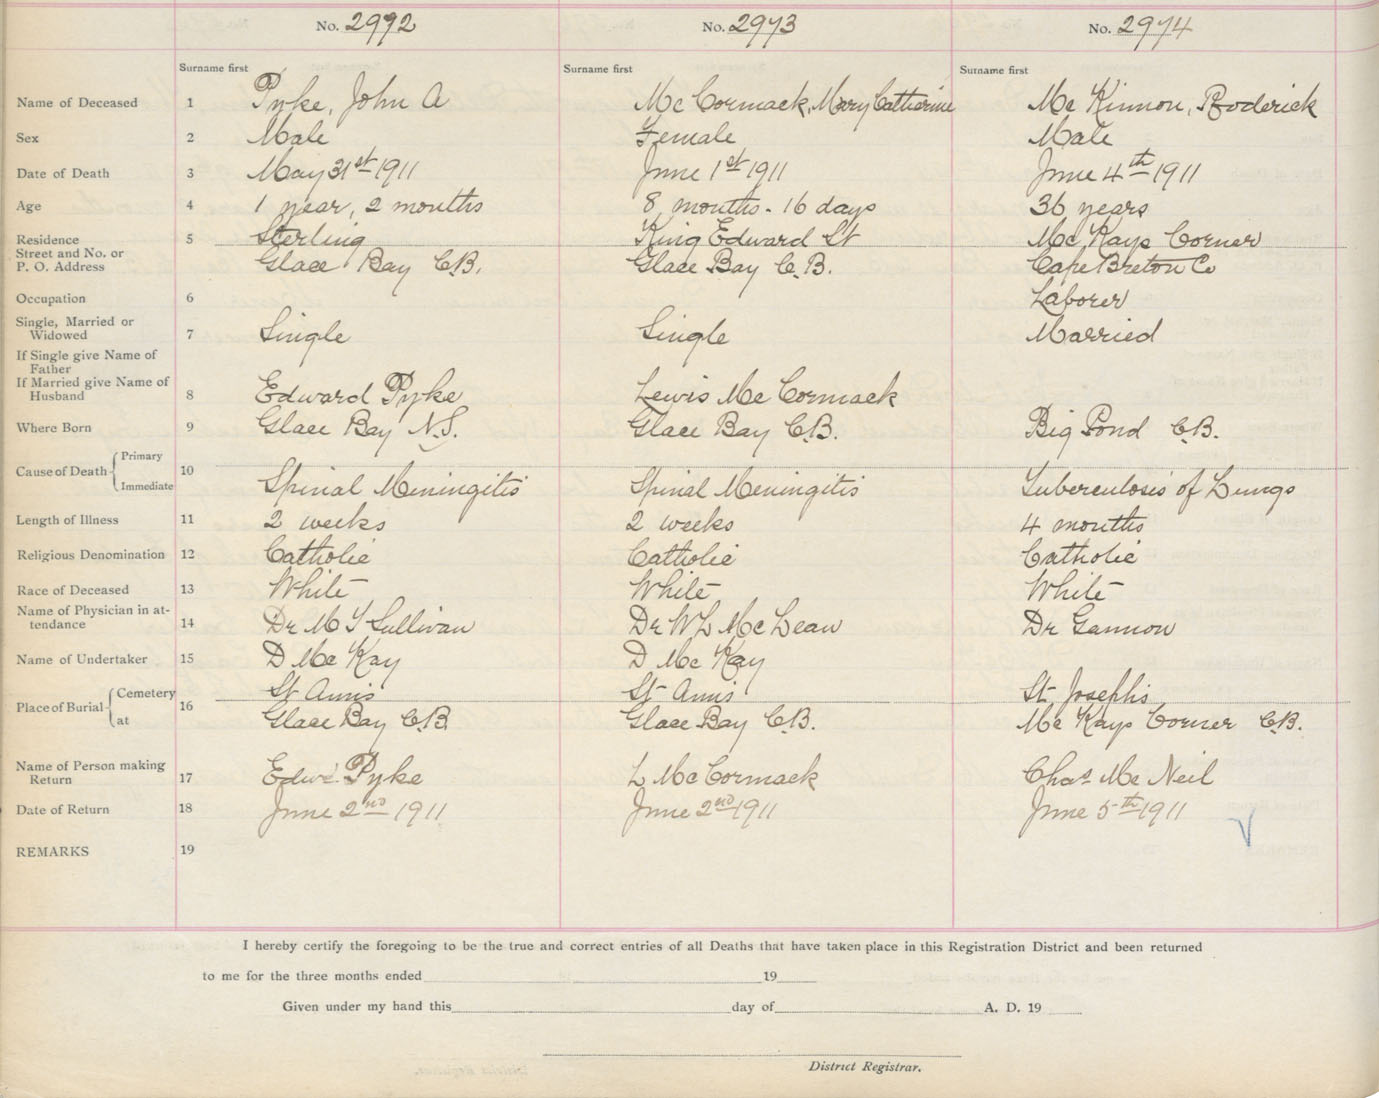 No. 2972 No. 2973 No. 2974
Surname first Surname first Surname first
Name of Deceased 1 Pyke, John A Mc Cormack, Mary Catharine Mc Kinnon, Roderick
Sex 2 Male Female Male
Date of Death 3 May 31st 1911 June 1st 1911 June 4th 1911
Age 4 1 year, 2 months 8 months - 16 days 36 years
Residence 5 Sterling King Edward St Mc Kays Corner
Street and No. or
P. O. Address Glace Bay C.B. Glace Bay C.B. Cape Breton Co
Occupation 6 Laborer
Single, Married or
Widowed 7 Single Single Married
If Single give Name of
Father
If Married give Name of
Husband 8 Edward Pyke Lewis Mc Cormack
Where Born 9 Glace Bay N.S. Glace Bay C.B. Big Pond C.B.
Cause of Death { Primary 10
Immediate Spinal Meningitis Spinal Meningitis Tuberculosis of Lungs
Length of Illness 11 2 weeks 2 weeks 4 months
Religious Denomination 12 Catholic Catholic Catholic
Race of Deceased 13 White White White
Name of Physician in at-
tendance 14 Dr M T Sullivan Dr W L Mc Lean Dr Gannon
Name of Undertaker 15 D Mc Kay D Mc Kay
Place of Burial { Cemetery 16 St Anns St Anns St Josephs
at Glace Bay C.B. Glace Bay C.B. Mc Kays Corner C.B.
Name of Person making
Return 17 Edwd. Pyke L Mc Cormack Chas Mc Neil
Date of Return 18 June 2nd 1911 June 2nd 1911 June 5th 1911
REMARKS 19
I hereby certify the foregoing to be the true and correct entries of all Deaths that have taken place in this Registration District and been returned
to me for the three months ended 19
Given under my hand this day of A. D. 19
District Registrar.